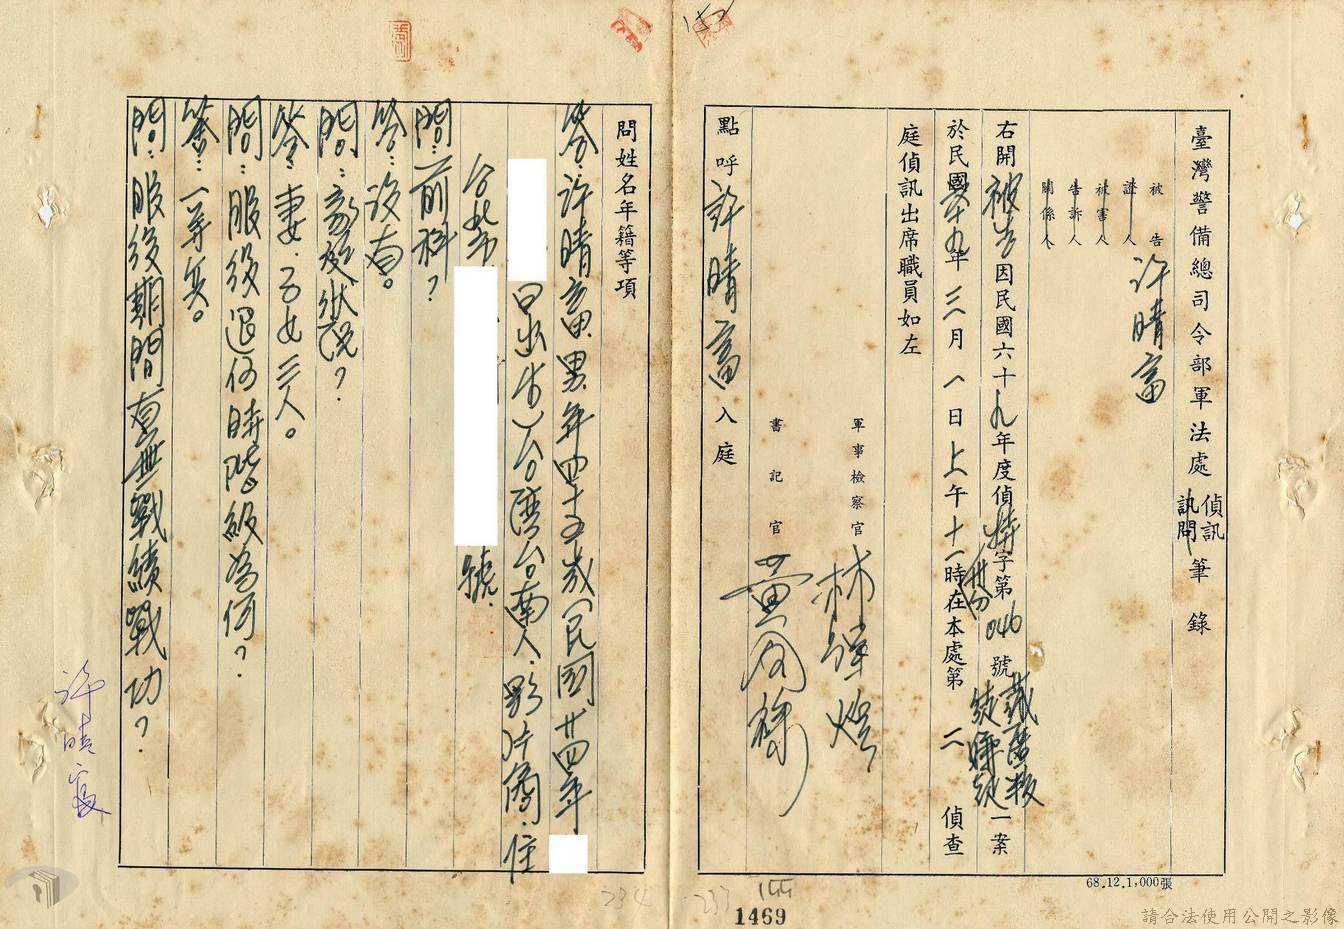 臺灣警備總司令部軍法處偵訊訊問筆錄
被告 許晴富
證人
被害人
告訴人
關係人
右開被告因民國六十九年度偵特字第046號藏匿叛徒
一案
於民國六十九年三月一日上午十一時在本處第二偵查
庭偵訊出席職員如左
軍事檢察官 林輝煌
書記官 黃
點呼許晴富入庭
問姓名年籍等項
答:許晴富.男.年四十五歲(民國廿四年
日出生)台灣台南人.影片商.住
台北市
號.
問:前科?
答:沒有。
問:家庭狀況?
答:妻.子女三人。
問:服役退伍時階級為何?
答:一等兵。
問:服役期間有無戰績戰功?
許晴富
68.12.1,000張
1469
請合法使用公開之影像